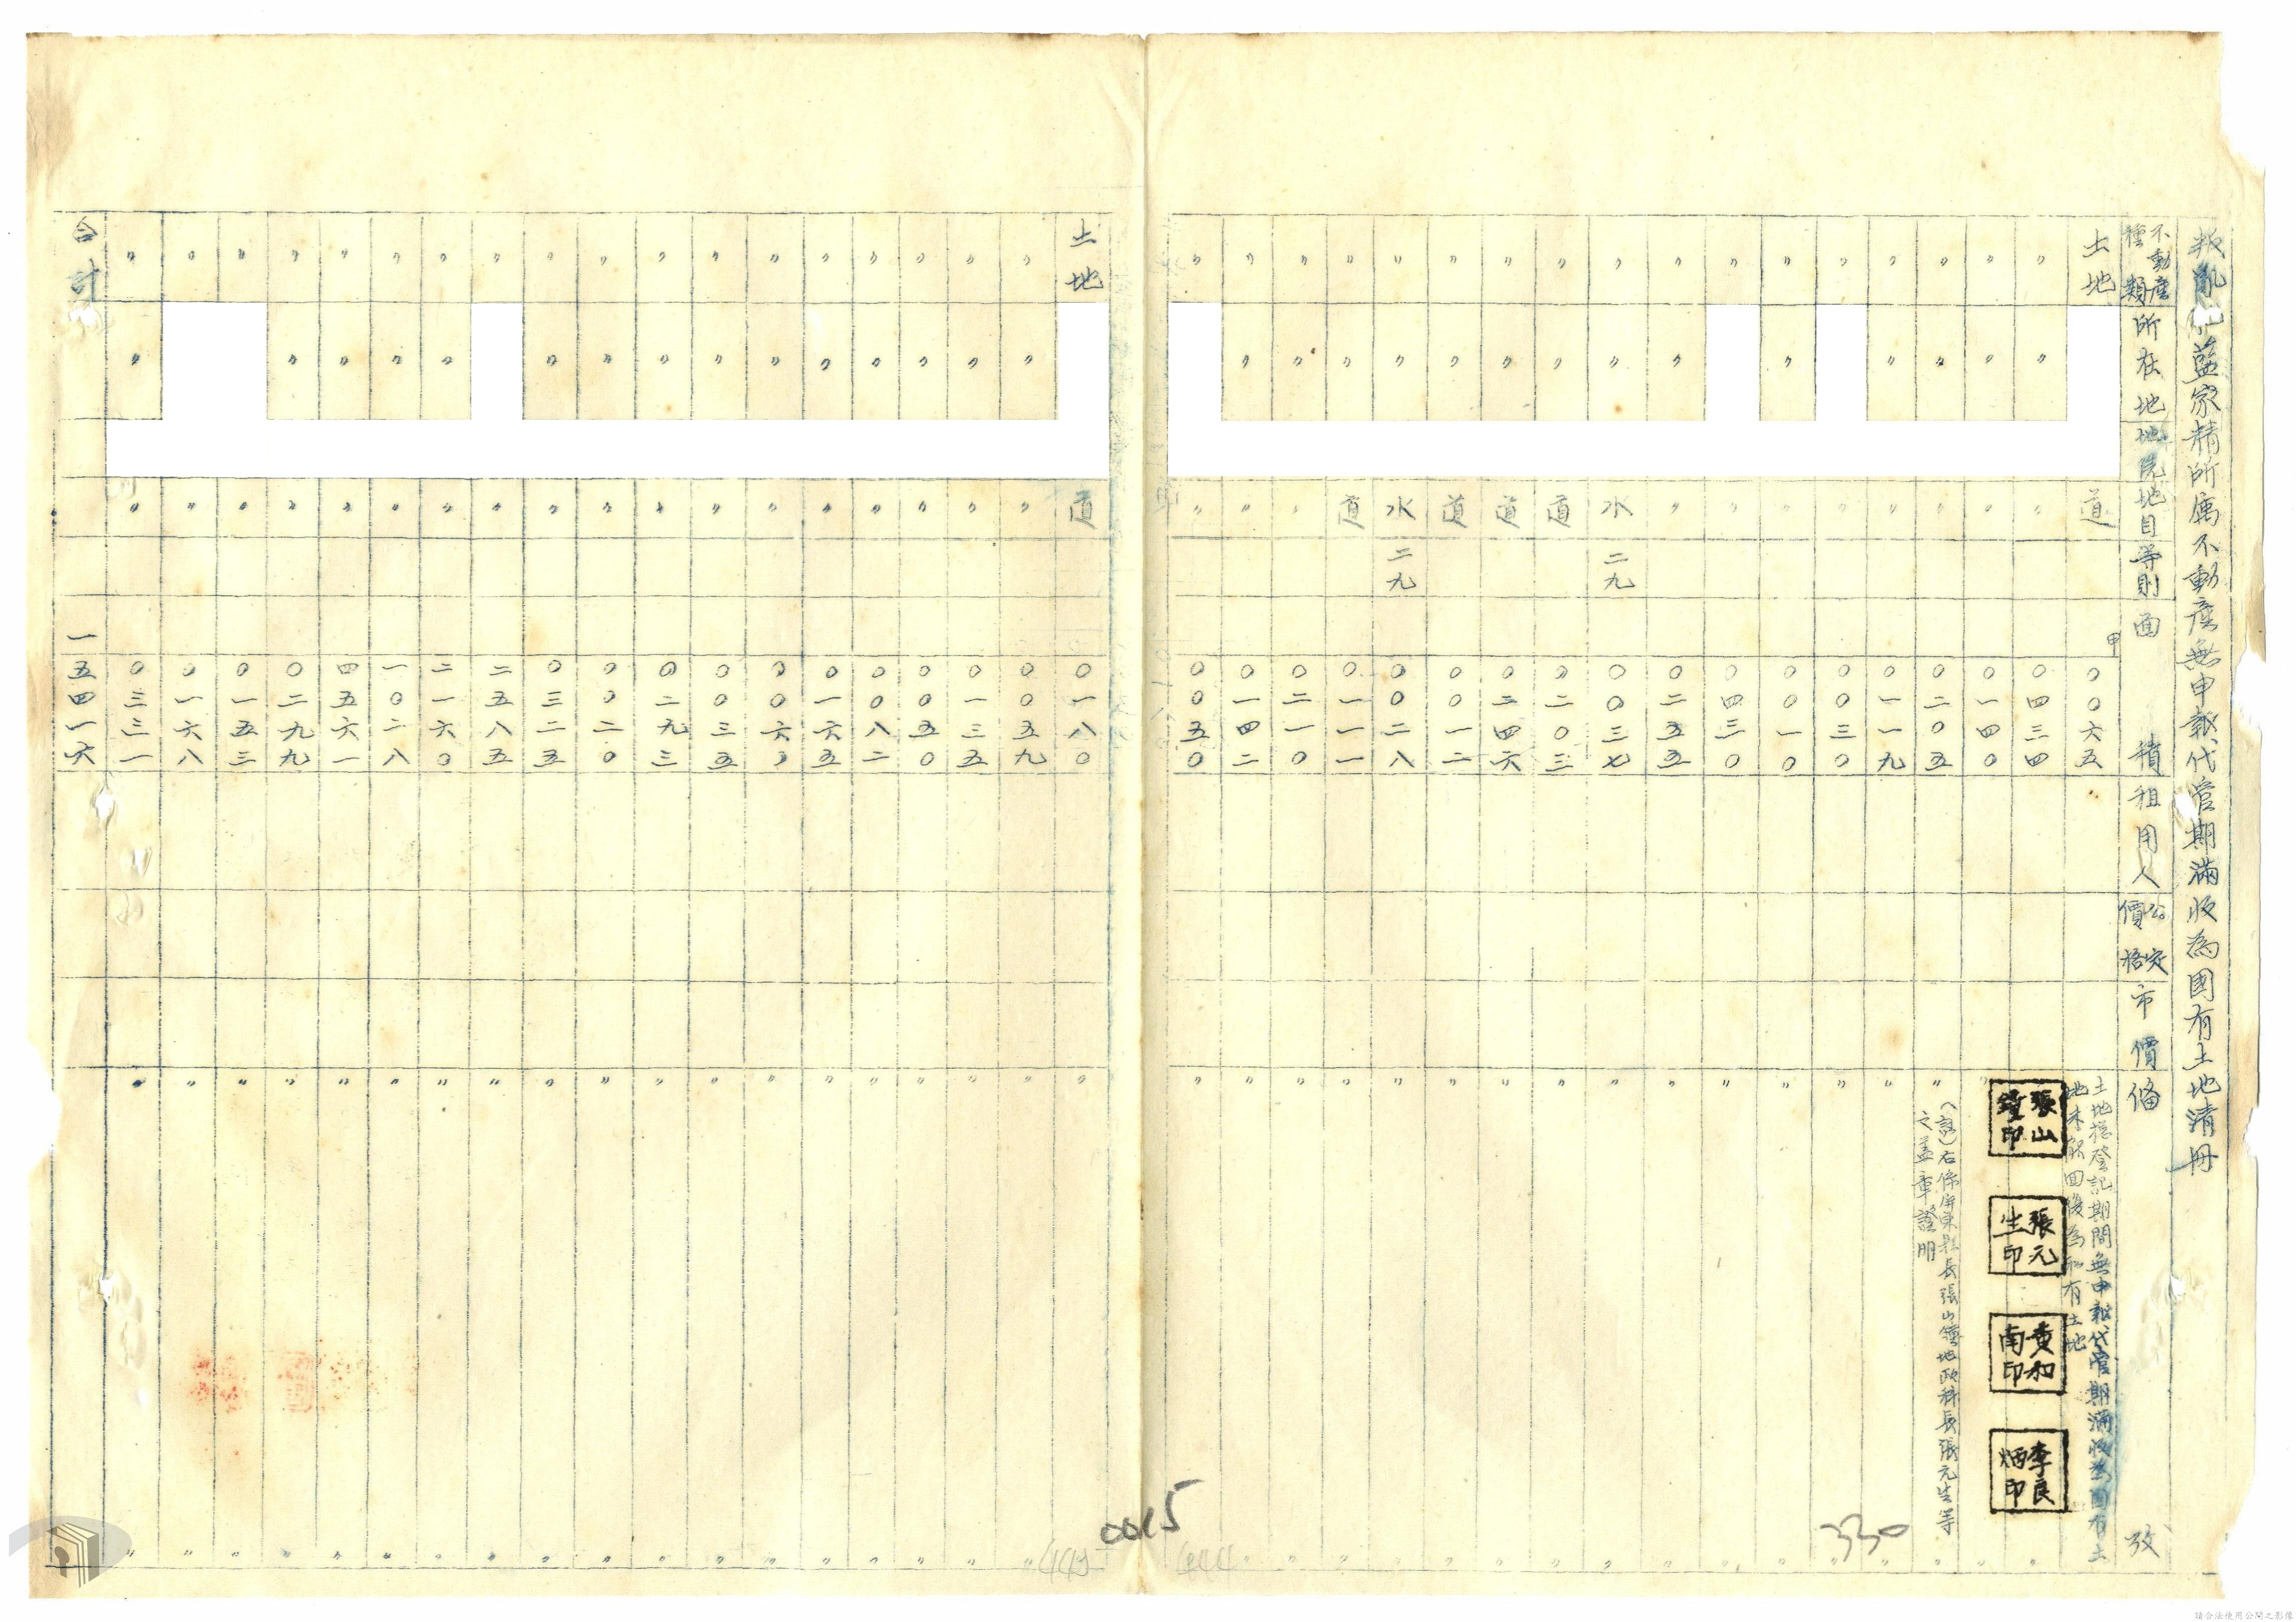 叛亂 藍家精所屬不動產無申報代管期滿收為國有土地清冊
不動產種類 所在地 地號 地目 等則 面積 租用人 公定價格 市價 備攷
土地 道 甲 〇〇六五 土地總登記期間無申報代管期滿收為國有土
地未 回後為私有土地
〃 〃 〃 〇四三四 〃
張山鐘印
張元生印
黃和南印
李良炳印
〃 〃 〃 〇一四〇 〃 〃
〃 〃 〃 〇二〇五 〃 〃
(註)右係屏東縣長張山鐘地政科長張元生等
之蓋章證明
〃 〃 〃 〇一一九 〃 〃
〃 〃 〇〇三〇 〃 〃
〃 〃 〃 〇〇一〇 〃 〃
〃 〃 〇四三〇 〃 〃
〃 〃 〃 〇二五五 〃 〃
〃 〃 水 二九 〇〇三七 〃 〃
〃 〃 道 〇二〇三 〃 〃
〃 〃 道 〇二四六 〃 〃
〃 〃 道 〇〇一二 〃 〃
〃 〃 水 二九 〇〇二八 〃 〃
〃 〃 道 〇一一一 〃 〃
〃 〃 〃 〇二一〇 〃 〃
〃 〃 〃 〇一四二 〃 〃
〃 〃 〇〇五〇 〃
330
444
0015
445
土地 道 〇一八〇 〃
〃 〃 〃 〇〇五九 〃 〃
〃 〃 〃 〇一三五 〃 〃
〃 〃 〃 〇〇五〇 〃 〃
〃 〃 〃 〇〇八二 〃 〃
〃 〃 〃 〇一六五 〃 〃
〃 〃 〃 〇〇六〇 〃 〃
〃 〃 〃 〇〇三五 〃 〃
〃 〃 〃 〇二九三 〃 〃
〃 〃 〃 〇〇二〇 〃 〃
〃 〃 〃 〇三二五 〃 〃
〃 〃 二五八五 〃 〃
〃 〃 〃 二一六〇 〃 〃
〃 〃 〃 一〇二八 〃 〃
〃 〃 〃 四五六一 〃 〃
〃 〃 〃 〇二九九 〃 〃
〃 〃 〇一五三 〃 〃
〃 〃 〇一六八 〃 〃
〃 〃 〃 〇三三一 〃 〃
合計 一五四一六
請合法使用公開之影像